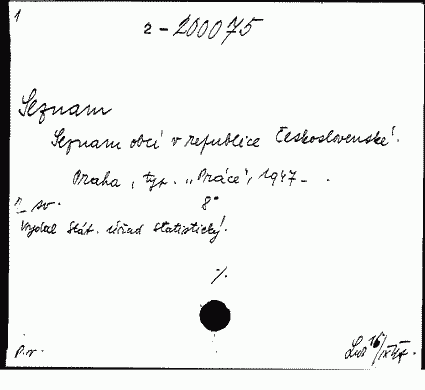 1
2 - 200075
Seznam
Seznam obcí v republice Československé.
Praha, typ. „Práce", 1947 - .
sv. 8°
Vydal Stát. úřad statistický.
%
p.v.